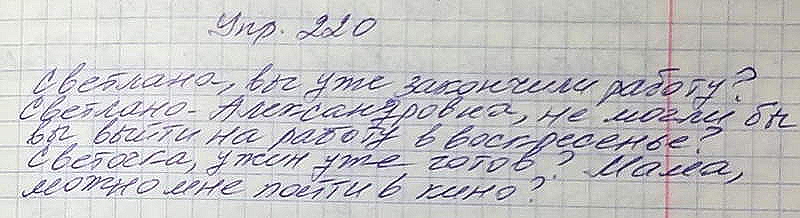 Упр. 220
Светлана, вы уже закончили работу?
Светлана Александровна, не могли бы
вы выйти на работу в воскресенье?
Светоска, ужин уже готов? Мама,
можно мне пойти в кино?